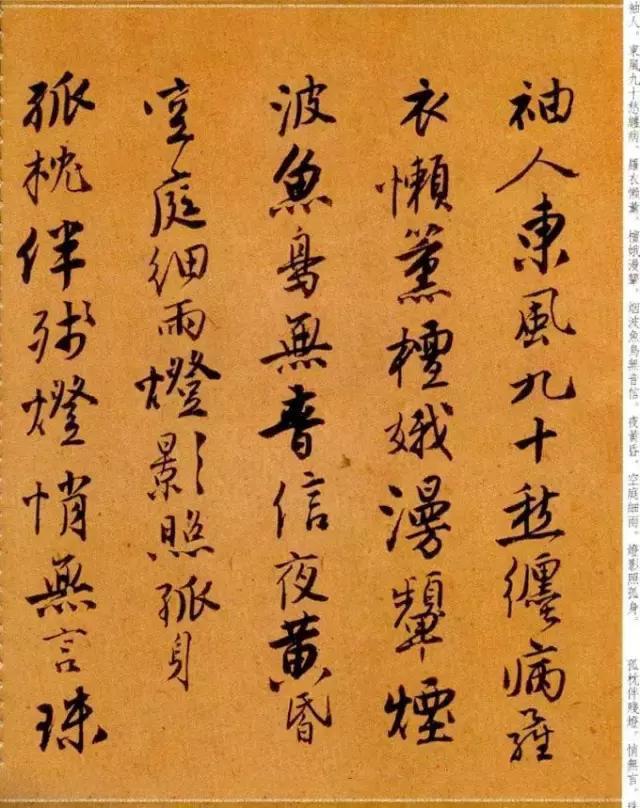 袖人東風九十愁纏病羅
衣懶薰檀娥漫顰煙
波魚鳥無音信夜黃昏
空庭細雨燈影照孤身
孤枕伴殘燈悄無言珠
袖人。東風九十愁纏病、羅衣懶薰、檀娥漫顰、烟波魚鳥無音信。夜黃昏、空庭細雨、燈影照孤身。 孤枕伴殘燈、悄無言、